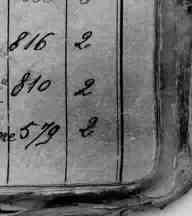 816 2
810 2
ne 579 2